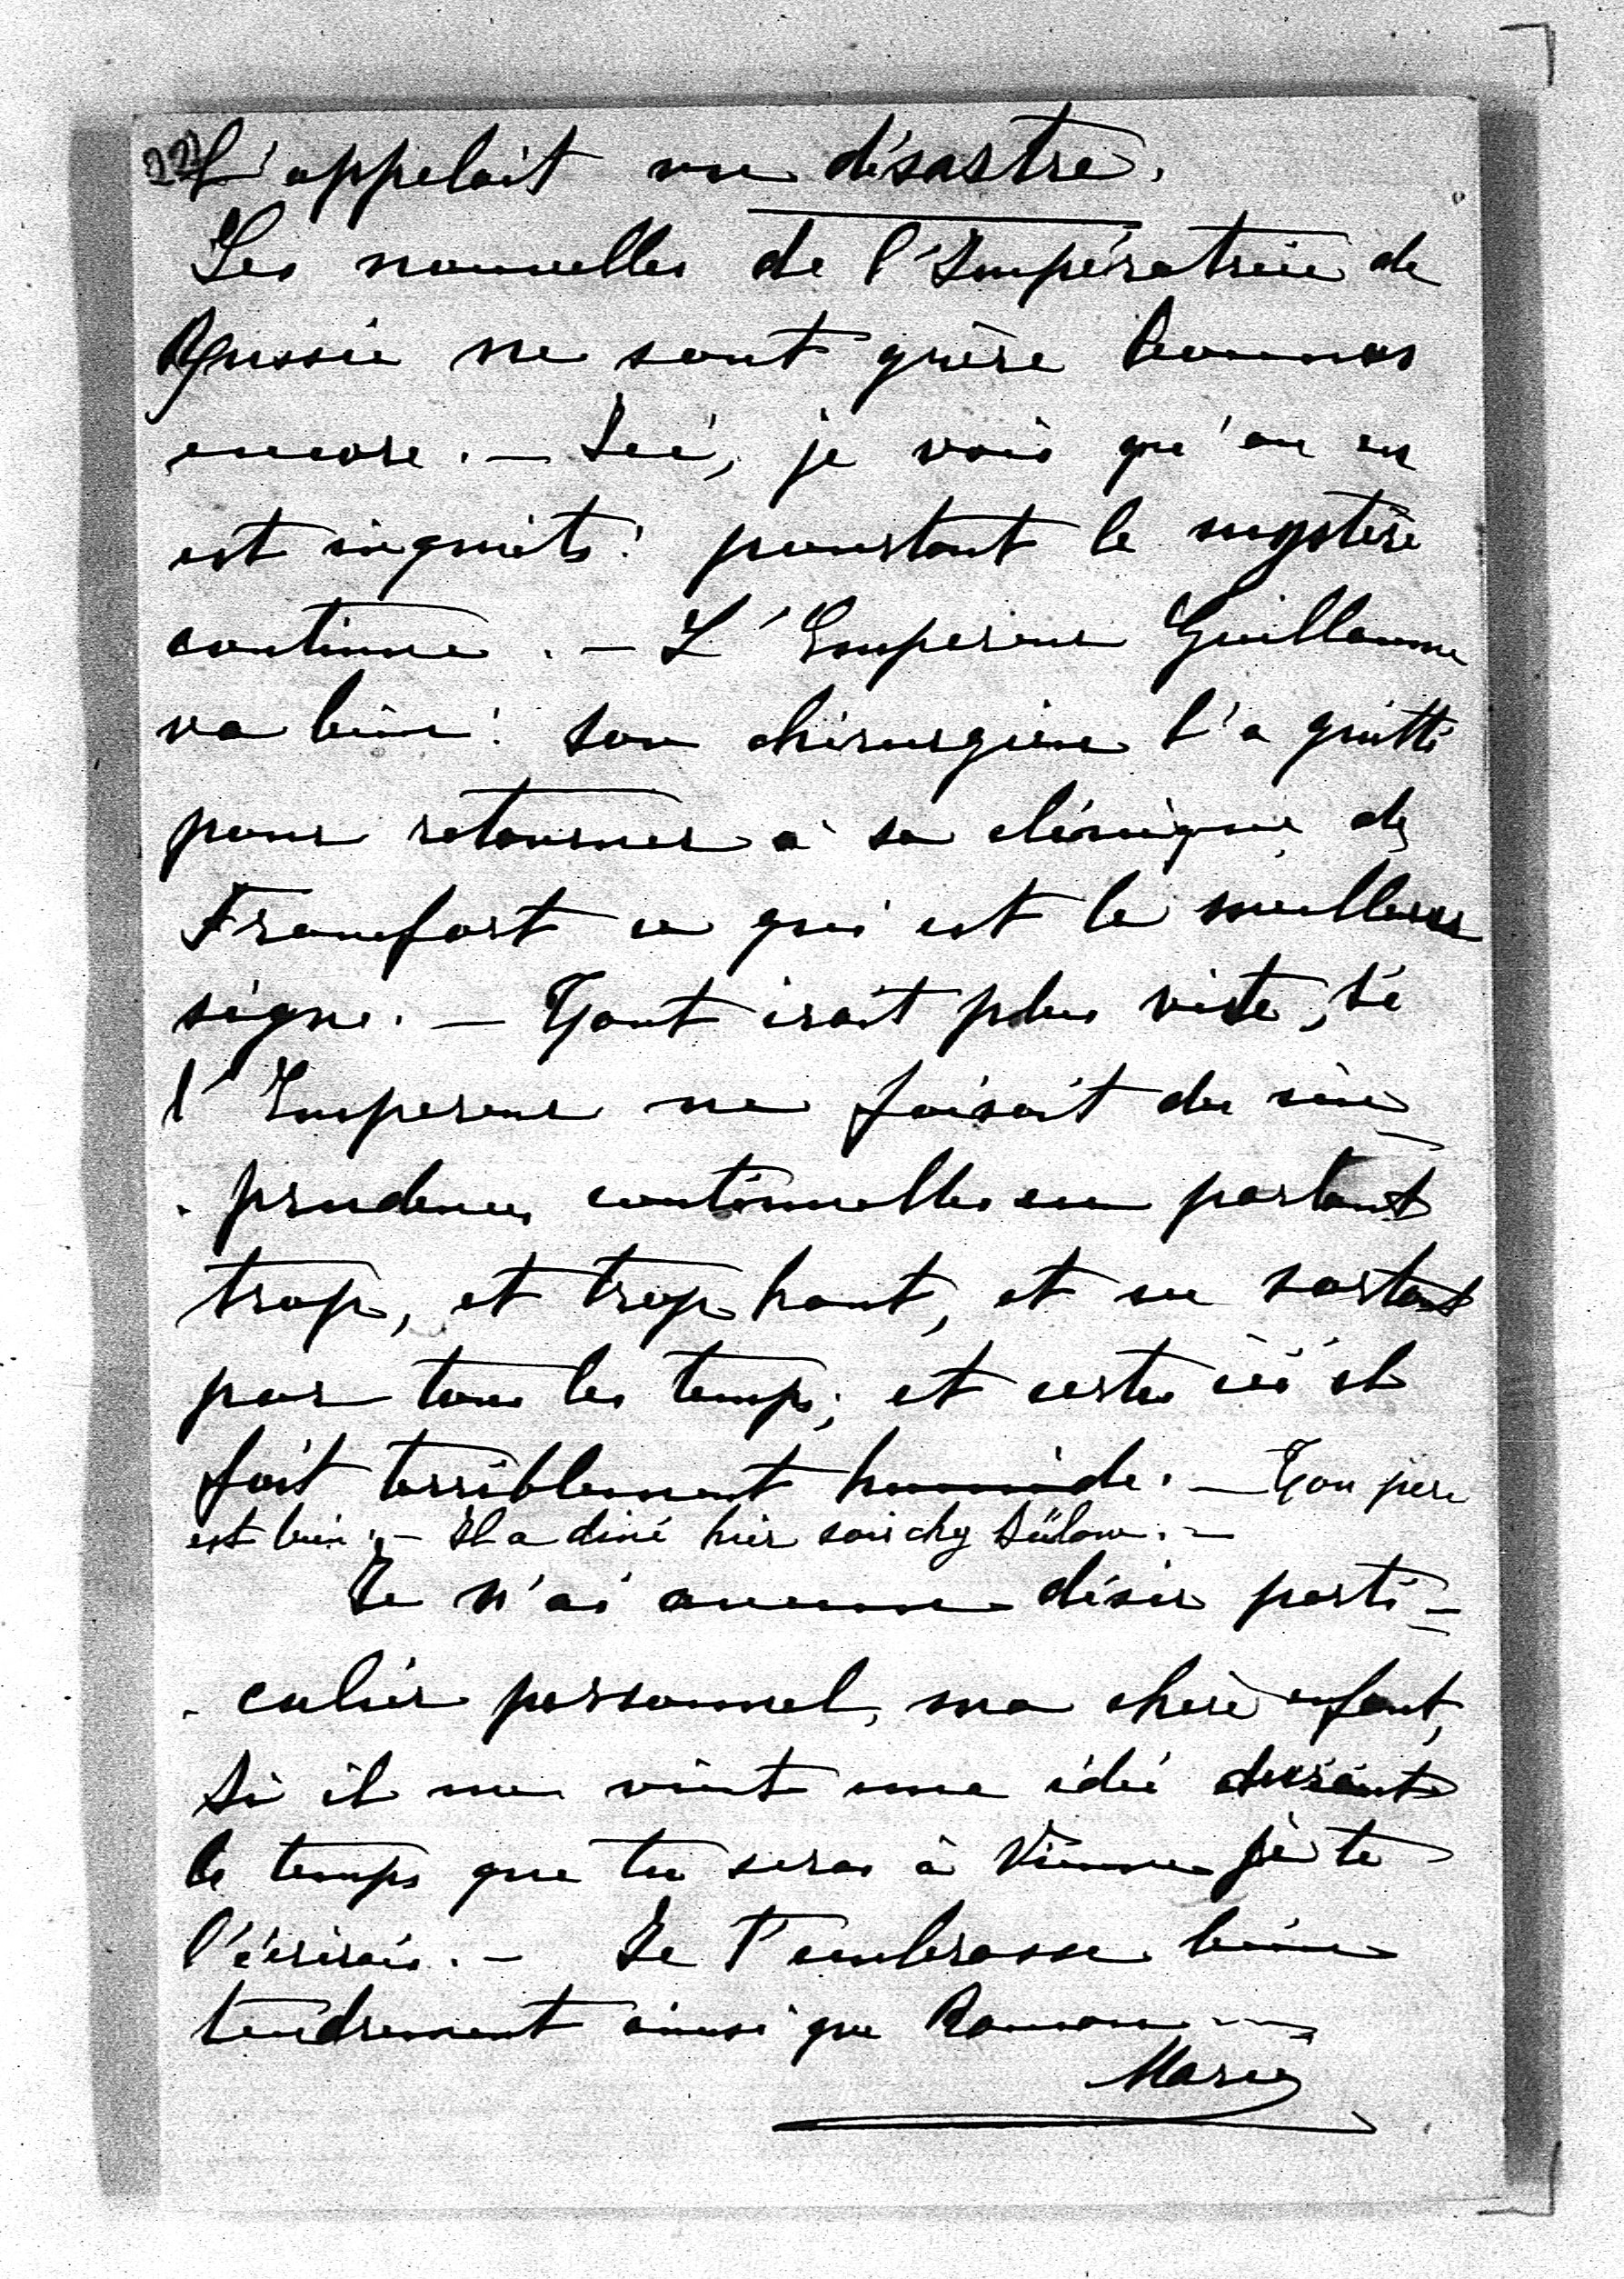 22
L'appelait un désastre.
Les nouvelles de l'Impératrice de
Russie ne sont guère bonnes
encore. — Ici, je vois qu'on en
est inquiets: pourtant le mystère
continue. — L'Empereur Guillaume
va bien: son chirurgien l'a quitté
pour retourner à sa clinique de
Francfort ce qui est le meilleur
signe. — Tout irait plus viste, si
l'Empereur ne faisait des im-
-prudences continuelles en parlant
trop, et trop haut, et en sortant
par tous les temps; et certes ici il
fait terriblement humide. — Ton père
est bien. — Il a diné hier soir chez Bülow. —
Je n'ai aucun désir parti-
-culier personnel, ma chère enfant,
Si il me vient une idée durant
le temps que tu seras à Vienne je te
l'écrirais. — Je t'embrasse bien
tendrement ainsi que
Marie